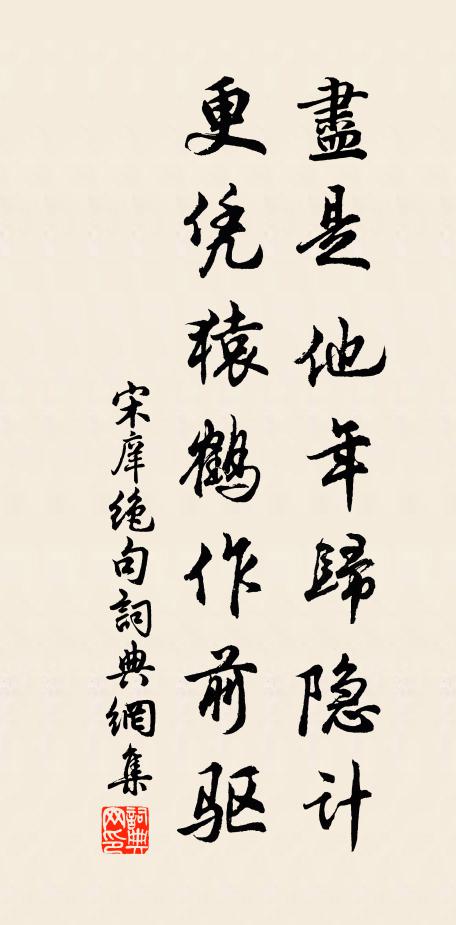 盡是他年歸隐计
更凭猿鶴作前驱
宋庠绝句詞典網集
詞典網印